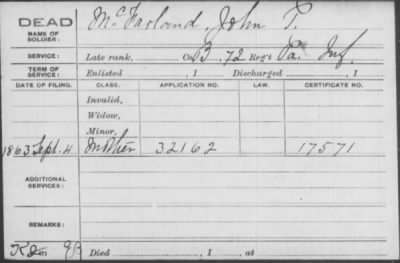 DEAD McFarland, John T.
NAME OF
SOLDIER:
SERVICE: Late rank, Co. B, 72 Reg't Pa. Inf.
TERM OF
SERVICE: Enlisted , 1 Discharged , 1
DATE OF FILING. CLASS. APPLICATION NO. LAW. CERTIFICATE NO.
Invalid,
Widow,
Minor,
1863 Sept. 4 Mother 32162 17571
ADDITIONAL
SERVICES:
REMARKS:
Died , 1 , at